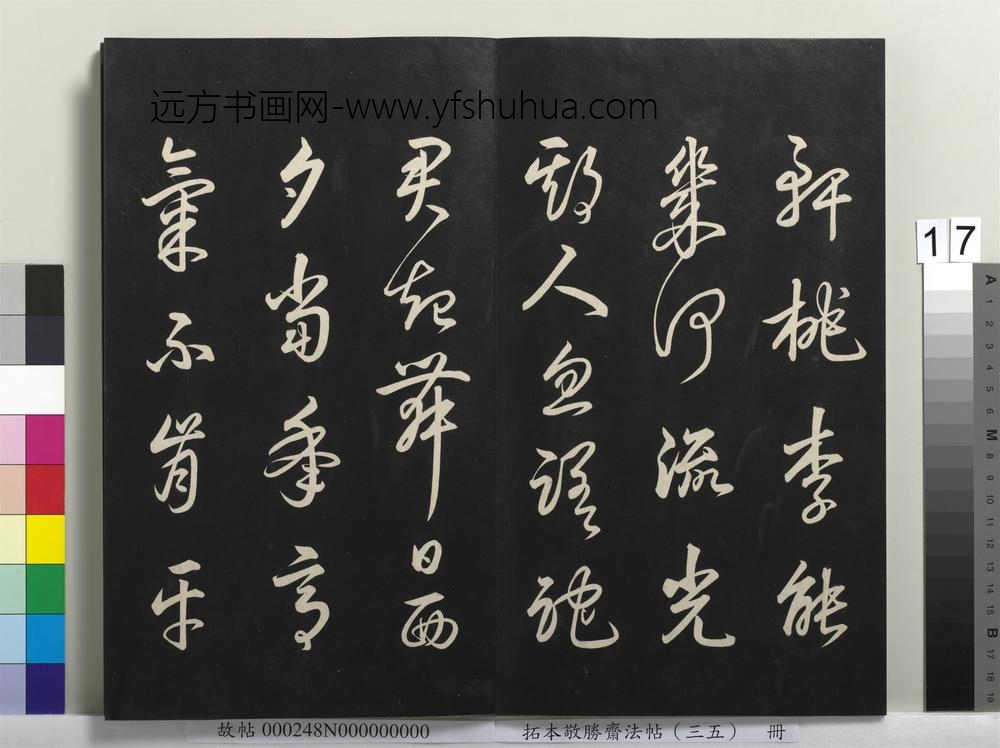 远方书画网-www.yfshuhua.com
軒桃李能
幾何流光
欺人忽蹉跎
君起舞日西
夕當年意
氣不肯平
17
A
1
2
3
4
5
6
M
8
9
10
11
12
13
14
15
B
17
18
19
故帖 000248N000000000
拓本敬勝齋法帖（三五） 冊